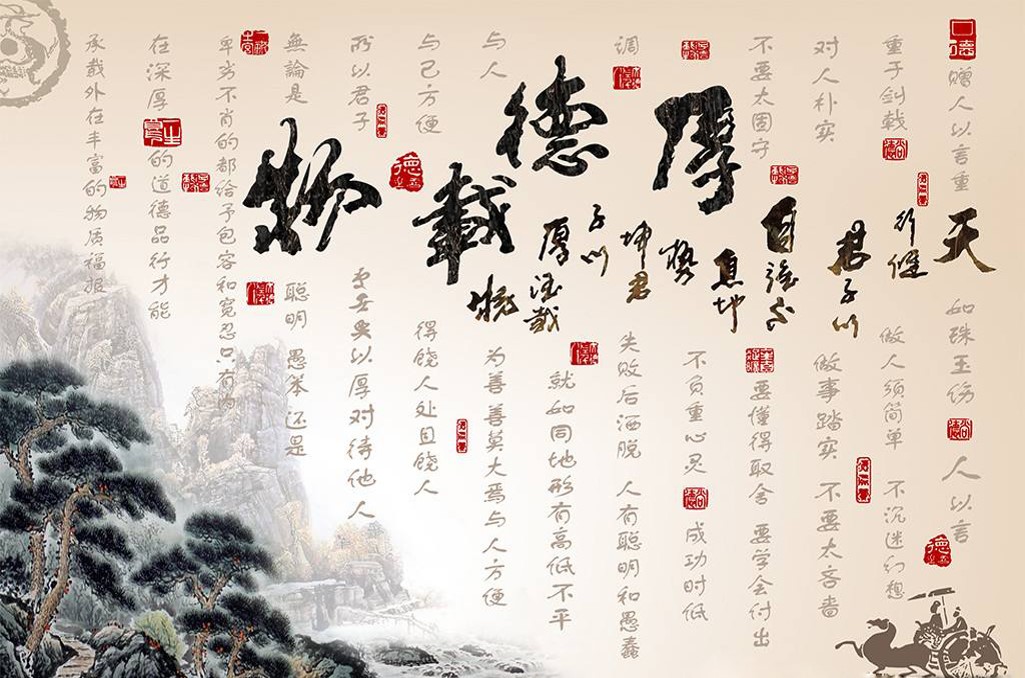 厚德載物
天
行健
君子以
自強不
息地
勢
坤君
子以
厚德載
物
赠人以言重 如珠玉伤 人以言
重于剑戟 做人须简单 不沉迷幻想
对人朴实 做事踏实 不要太吝啬
不要太固守 要懂得取舍 要学会付出
不负重心灵 成功时低
调 失败后洒脱 人有聪明和愚蠢
就如同地形有高低不平
与人 为善善莫大焉与人方便
与己方便 得饶人处且饶人
所以君子 以厚对待他人
無論是 聪明 愚笨 还是
卑劣不肖的都给予包容和宽忍只有内
在深厚 的道德品行才能
承载外在丰富的物质福报